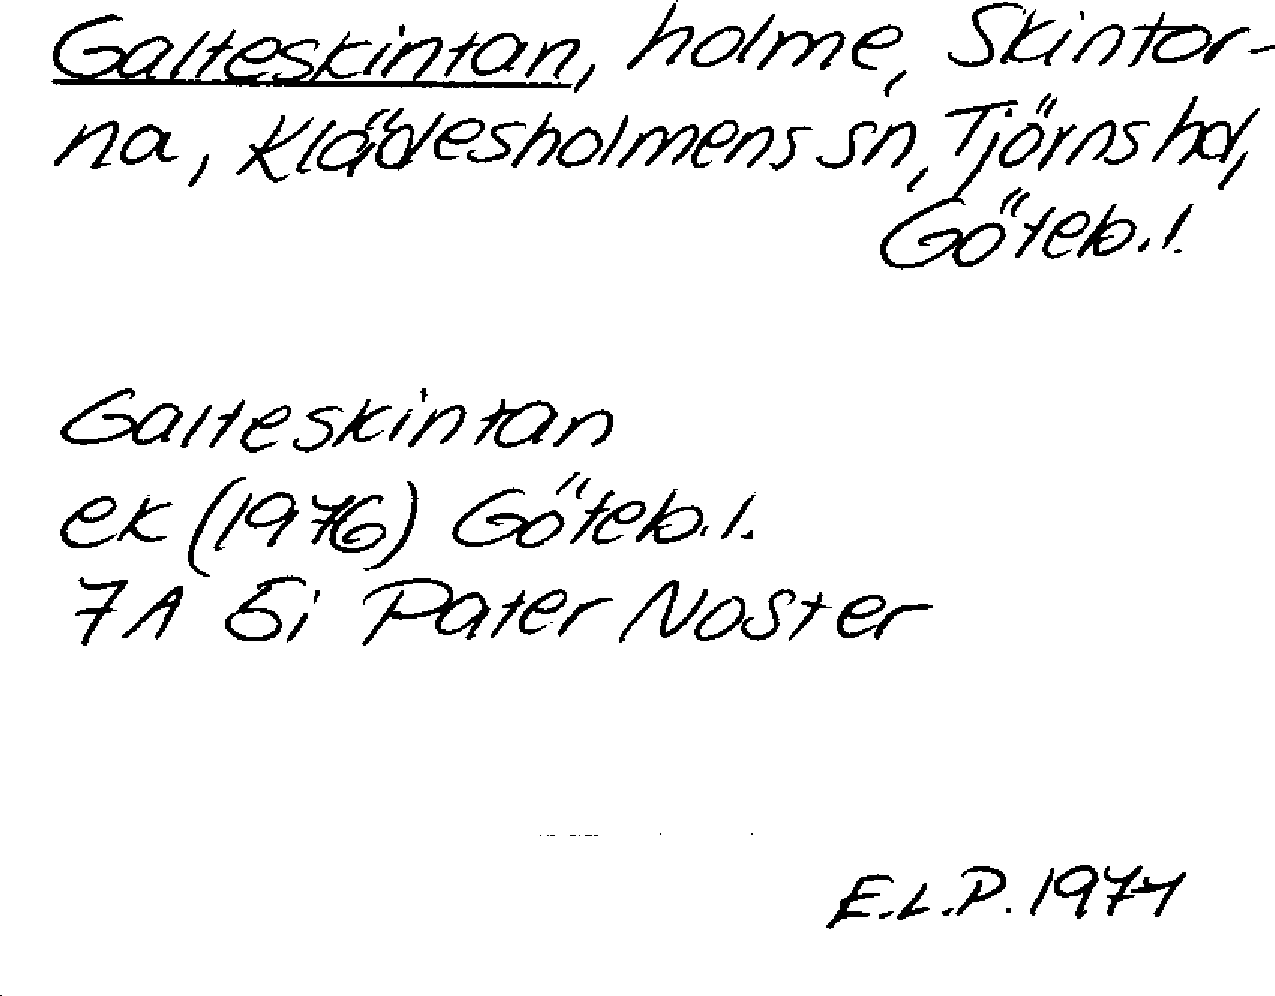 Galteskintan, holme, Skintor-
na, Klädesholmens sn, Tjörns hd,
Göteb. l.
Galteskintan
ek (1976) Göteb. l.
7A 5i Pater Noster
E.L.P. 1977